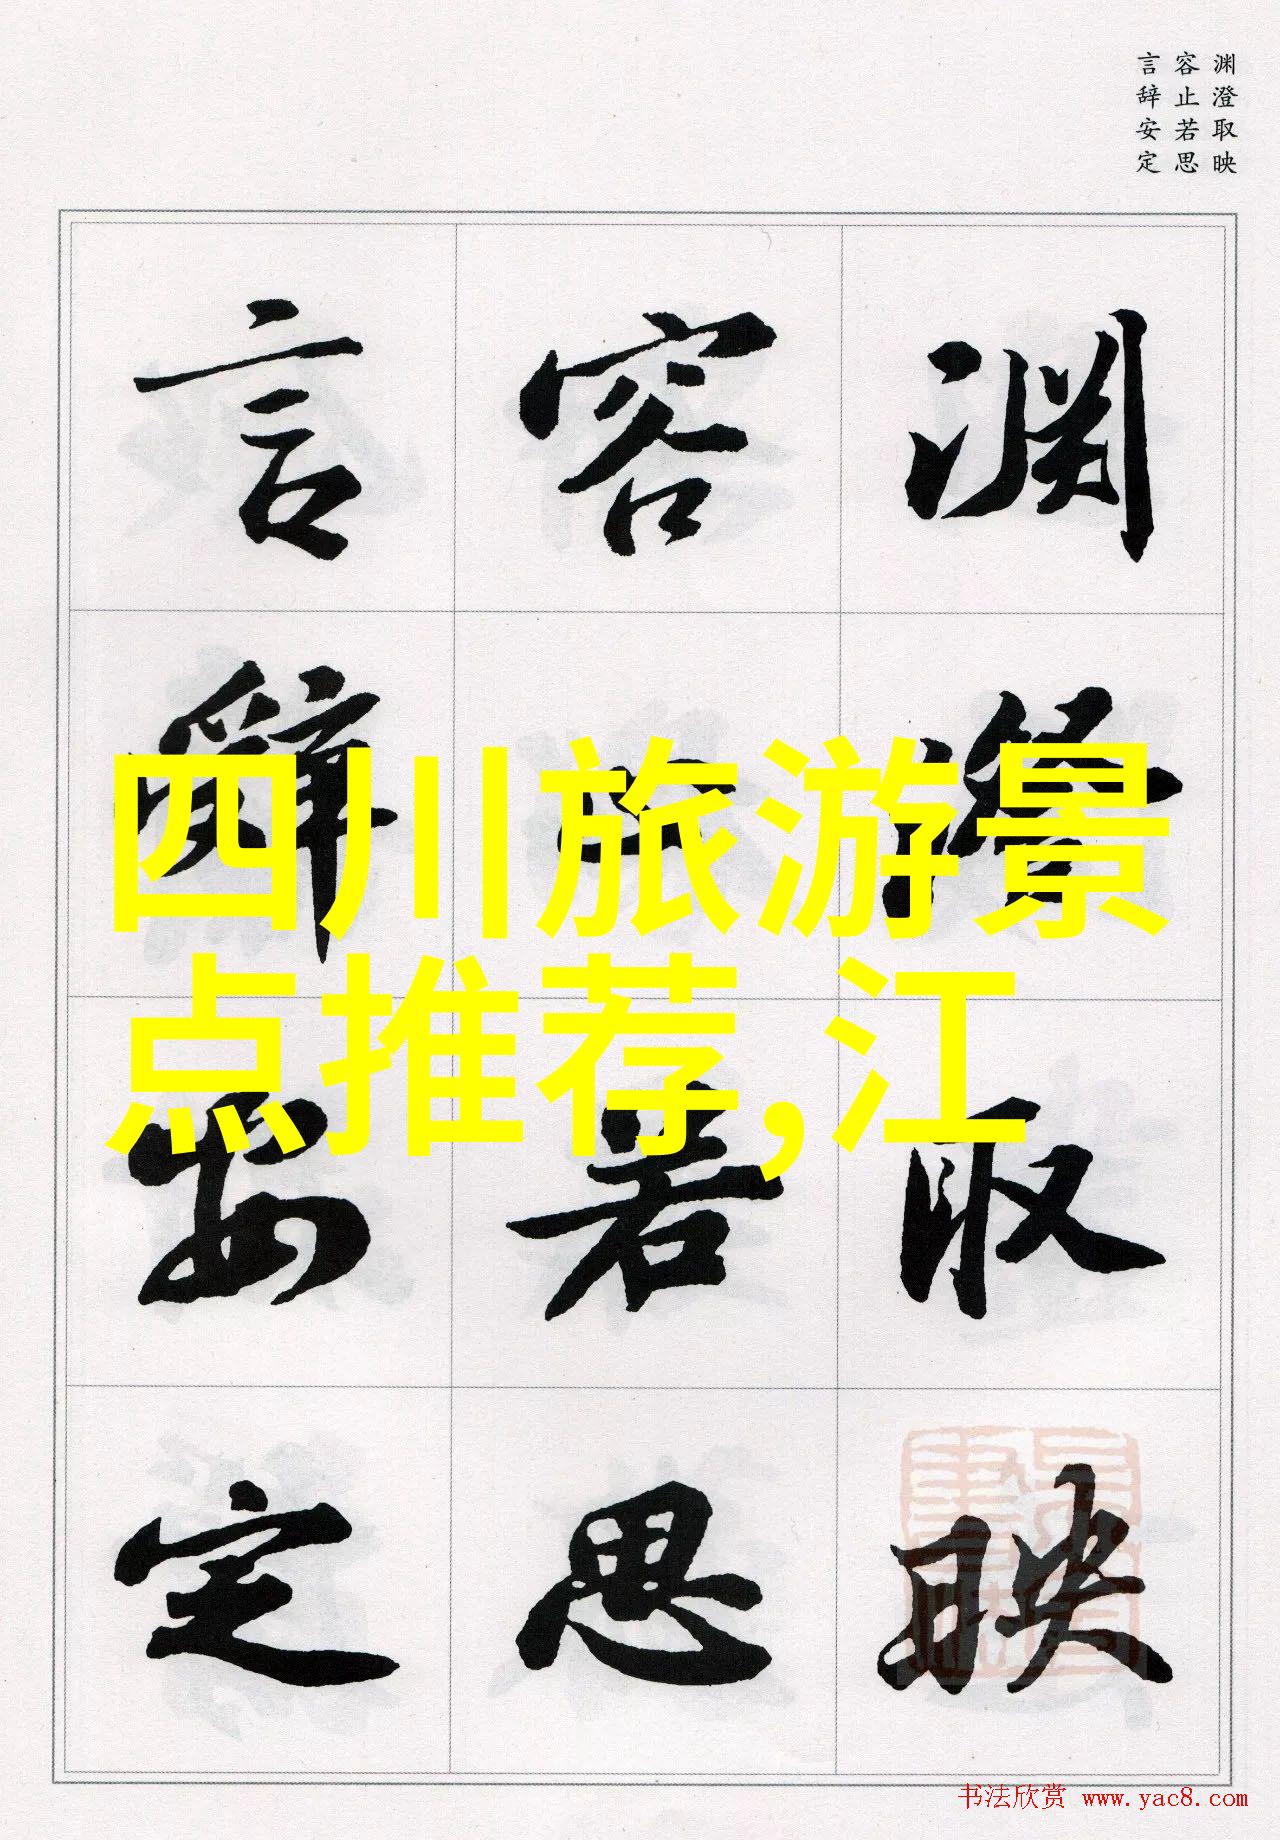 渊澄取映
容止若思
言辞安定
渊澄取映
容止若思
言辞安定
四川旅游景
点推荐,江
书法欣赏 www.yac8.com